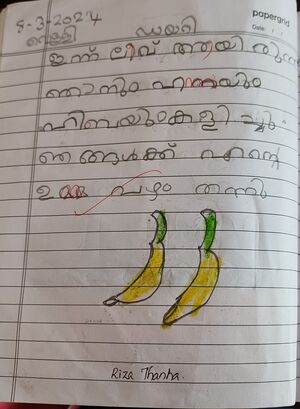 papergrid
Date: / /
8-3-2024
വെള്ളി
ഡയറി
ഇന്ന് ലീവ് ആയി രുന്നു
ഞാനും ഹന്നയും
ഹിബയുംകളി ച്ചു
ഞങ്ങൾക്ക് എന്റെ
ഉമ്മ പഴം തന്നു
Riza Thanha.